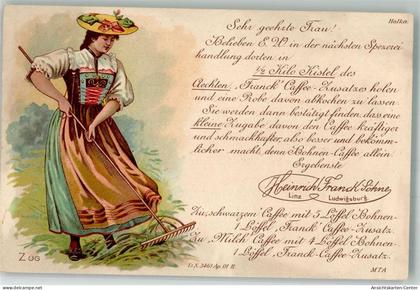 Halka.
Sehr geehrte Frau!
Belieben E. W. in der nächsten Specerei-
handlung dorten in
½ Kilo Kistel des
Aechten "Franck" Caffee-Zusatzes holen
und eine Probe davon abkochen zu lassen.
Sie werden dann bestätigt finden, dass eine
kleine Zugabe davon den Caffee kräftiger
und schmackhafter, also besser und bekömm-
licher macht, denn Bohnen-Caffee allein!
Ergebenste
Heinrich Franck Söhne,
Linz Ludwigsburg.
Zu "schwarzem" Caffee mit 5 Löffel Bohnen-
1 Löffel "Franck" Caffee-Zusatz.
Zu "Milch" Caffee mit 4 Löffel Bohnen-
1 Löffel "Franck"-Caffee-Zusatz.
ZUG
Lr.X. 3461 Ap. 01 II.
MTA
www.ansichtskarten-center.de
Ansichtskarten-Center.de